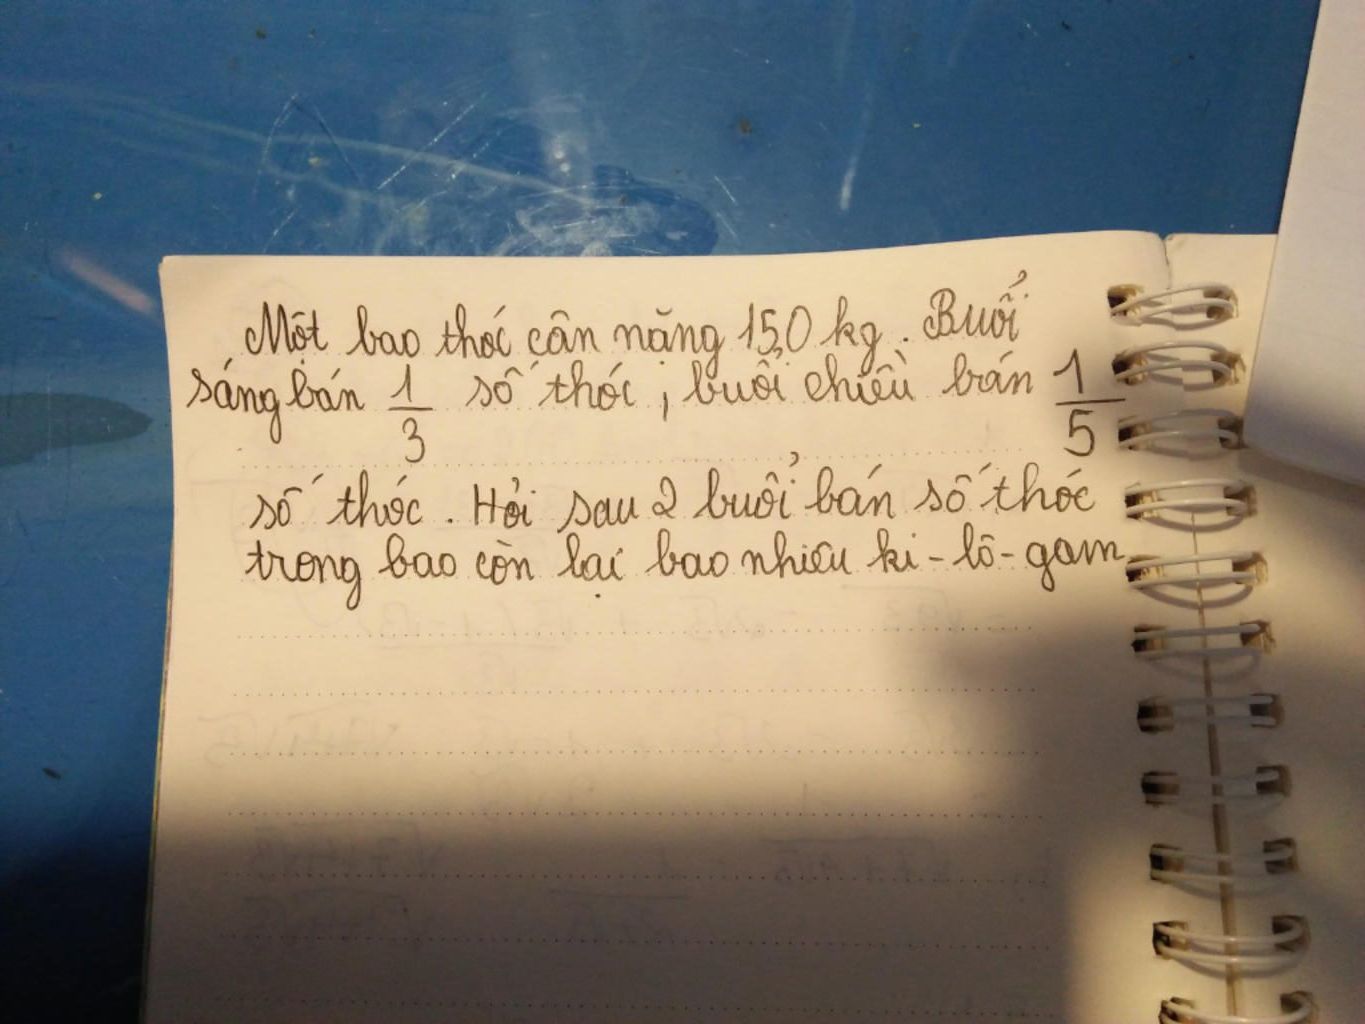 Một bao thóc cân nặng 150 kg. Buổi
sáng bán 1/3 số thóc, buổi chiều bán 1/5
số thóc. Hỏi sau 2 buổi bán số thóc
trong bao còn lại bao nhiêu ki-lô-gam